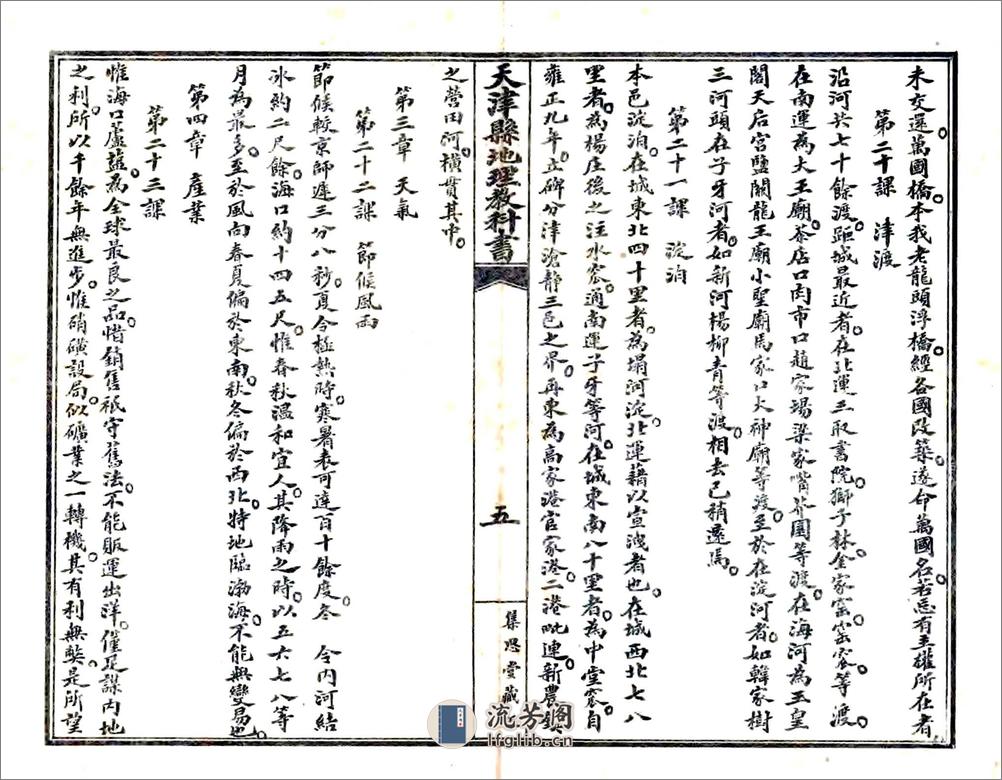 未交還萬國橋本我老龍頭浮橋經各國改築遂命萬國名若忘有主權所在者
第二十課　津渡
沿河共七十餘渡距城最近者在北運三取書院獅子林金家窰窰窪等渡
在南運為大王廟茶店口肉市口趙家場梁家嘴芥園等渡在海河為玉皇
閣天后宮鹽關龍王廟小聖廟馬家口大神廟等渡至於在淀河者如韓家樹
三河頭在子牙河者如新河楊柳青等渡相去已稍遠焉
第二十一課　淀泊
本邑淀泊在城東北四十里者為塌河淀北運藉以宣洩者也在城西北七八
里者為楊庄後之注水窪通南運子牙等河在城東南八十里者為中塘窪自
雍正九年立碑分津滄靜三邑之界再東為高家港官家港二港毗連新農鎮
天津縣地理教科書
五
集思堂藏
之營田河橫貫其中
第三章　天氣
第二十二課　節候風雨
節候較京師遲三分八秒夏令極熱時寒暑表可達百十餘度冬　令內河結
冰約二尺餘海口約十四五尺惟春秋溫和宜人其降雨之時以五六七八等
月為最多至於風向春夏偏於東南秋冬偏於西北特地臨渤海不能無變易也
第四章　產業
第二十三課
惟海口蘆鹽為全球最良之品惜銷售祇守舊法不能販運出洋僅足謀內地
之利所以千餘年無進步惟硝磺設局似礦業之一轉機其有利無獘是所望
流芳閣
lfglib.cn